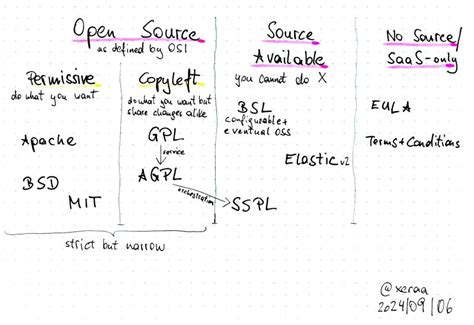 Open Source
as defined by OSI
Permissive
do what you want
Apache
BSD
MIT
Copyleft
do what you want but
share changes alike
GPL
service
AGPL
orchestration
strict but narrow
Source
Available
you cannot do X
BSL
configurable +
eventual OSS
Elastic v2
SSPL
No Source/
SaaS-only
EULA
Terms+Conditions
@xeraa
2024/09/06